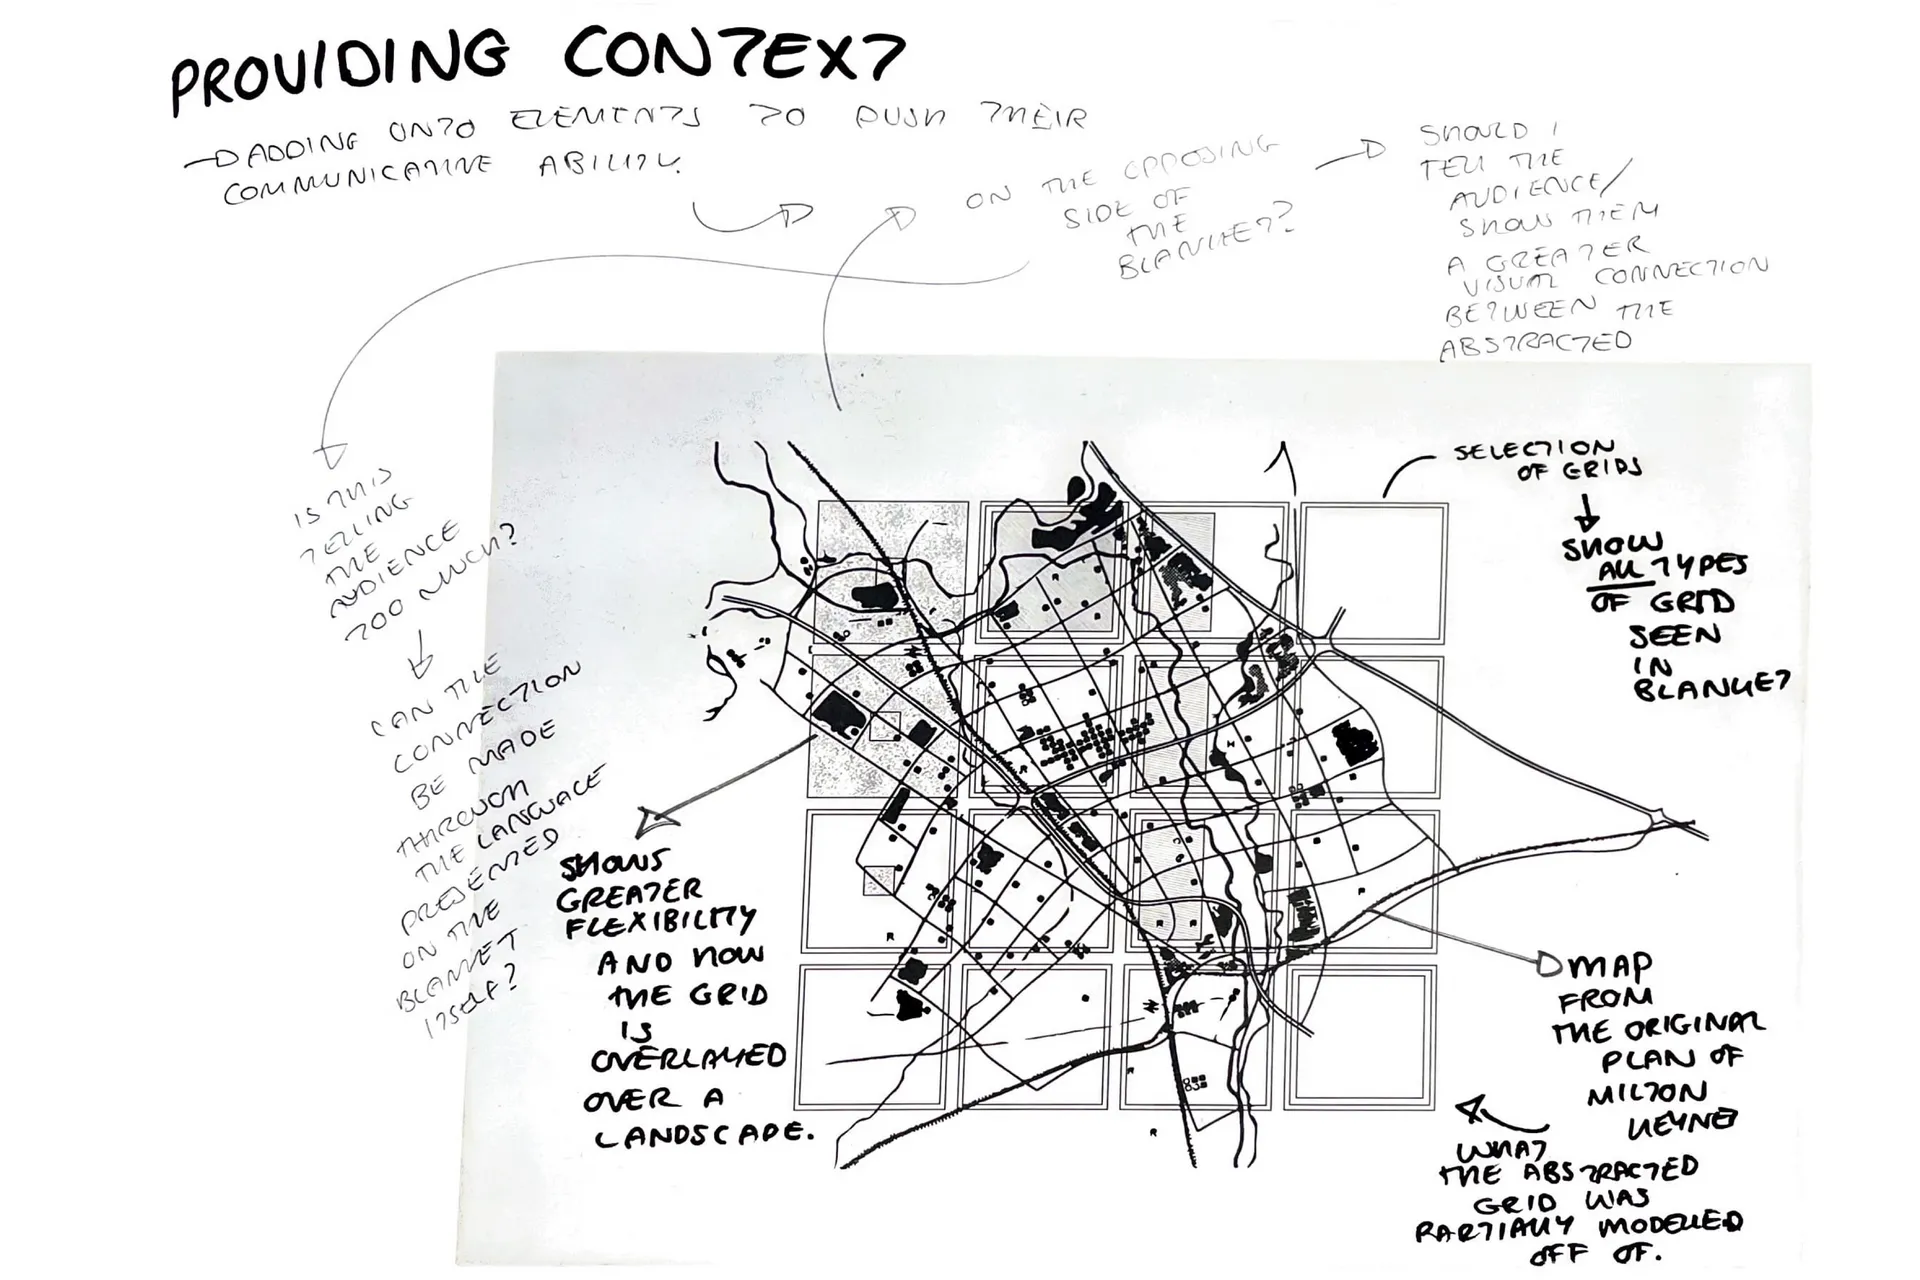 PROVIDING CONTEXT
ADDING ONTO ELEMENTS TO PUSH THEIR
COMMUNICATIVE ABILITY.
ON THE OPPOSING
SIDE OF
THE
BLANKET?
SHOULD I
TELL THE
AUDIENCE/
SHOW THEM
A GREATER
VISUAL CONNECTION
BETWEEN THE
ABSTRACTED
IS THIS
TELLING
THE
AUDIENCE
TOO MUCH?
CAN THE
CONNECTION
BE MADE
THROUGH
THE LANGUAGE
PRESENTED
ON THE
BLANKET
ITSELF?
SELECTION
OF GRIDS
SHOW
ALL TYPES
OF GRID
SEEN
IN
BLANKET
SHOWS
GREATER
FLEXIBILITY
AND HOW
THE GRID
IS
OVERLAYED
OVER A
LANDSCAPE.
MAP
FROM
THE ORIGINAL
PLAN OF
MILTON
KEYNES
WHAT
THE ABSTRACTED
GRID WAS
PARTIALLY MODELLED
OFF OF.